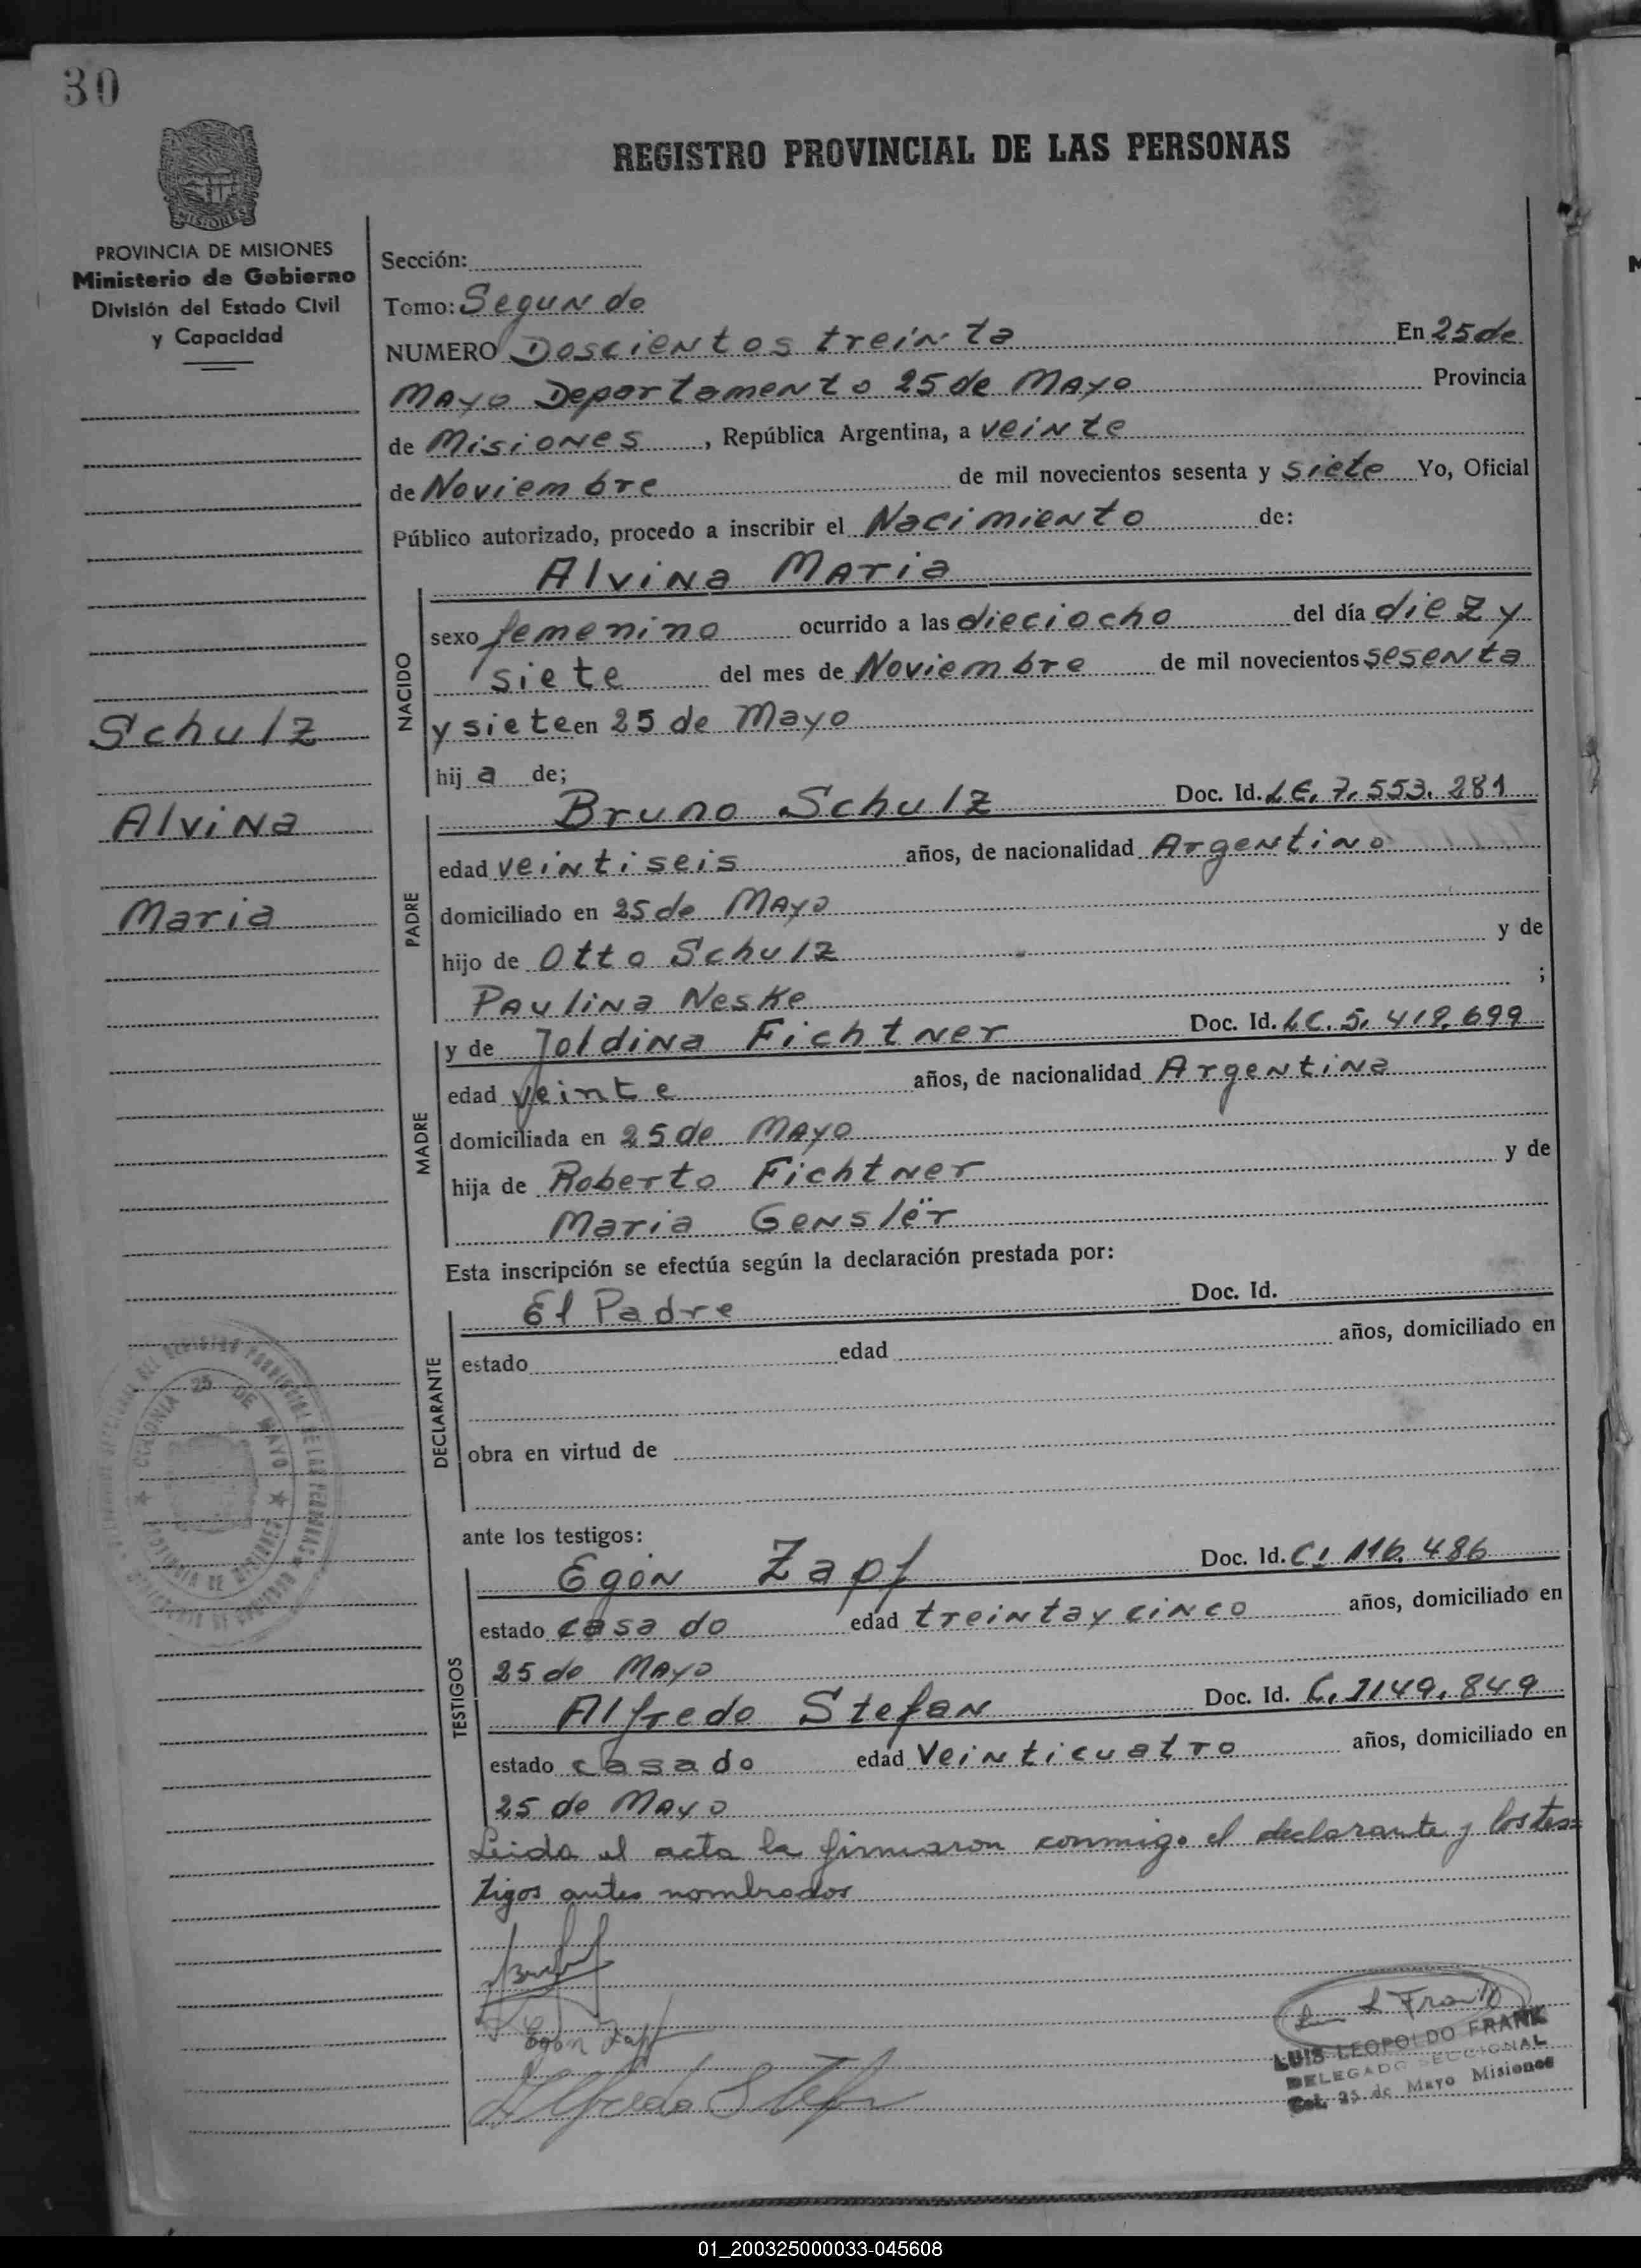 30
REGISTRO PROVINCIAL DE LAS PERSONAS
MISIONES
PROVINCIA DE MISIONES
Ministerio de Gobierno
División del Estado Civil
y Capacidad
Schulz
Alvina
Maria
Sección:
Tomo: Segundo
NUMERO Doscientos treinta En 25 de
Mayo Departamento 25 de Mayo Provincia
de Misiones, República Argentina, a veinte
de Noviembre de mil novecientos sesenta y siete Yo, Oficial
Público autorizado, procedo a inscribir el Nacimiento de:
NACIDO
Alvina Maria
sexo femenino ocurrido a las dieciocho del día diez y
siete del mes de Noviembre de mil novecientos sesenta
y siete en 25 de Mayo
hij a de;
PADRE
Bruno Schulz Doc. Id. LE. 7. 553. 281
edad veintiseis años, de nacionalidad Argentino
domiciliado en 25 de Mayo
hijo de Otto Schulz y de
Paulina Neske ;
MADRE
y de Joldina Fichtner Doc. Id. LC. 5. 419. 699
edad veinte años, de nacionalidad Argentina
domiciliada en 25 de Mayo
hija de Roberto Fichtner y de
Maria Genslër
Esta inscripción se efectúa según la declaración prestada por:
DECLARANTE
El Padre Doc. Id.
estado edad años, domiciliado en
obra en virtud de
COLONIA 25 DE MAYO
ante los testigos:
TESTIGOS
Egon Zapf Doc. Id. C! 116. 486
estado casado edad treinta y cinco años, domiciliado en
25 de Mayo
Alfredo Stefan Doc. Id. 149. 849
estado casado edad Veinticuatro años, domiciliado en
25 de Mayo
Leida el acta la firmaron conmigo el declarante y los tes=
tigos antes nombrados
Egon Zapf
Alfredo Stefan
L Frank
LUIS LEOPOLDO FRANK
DELEGADO SECCIONAL
Col. 25 de Mayo Misiones
01_200325000033-045608